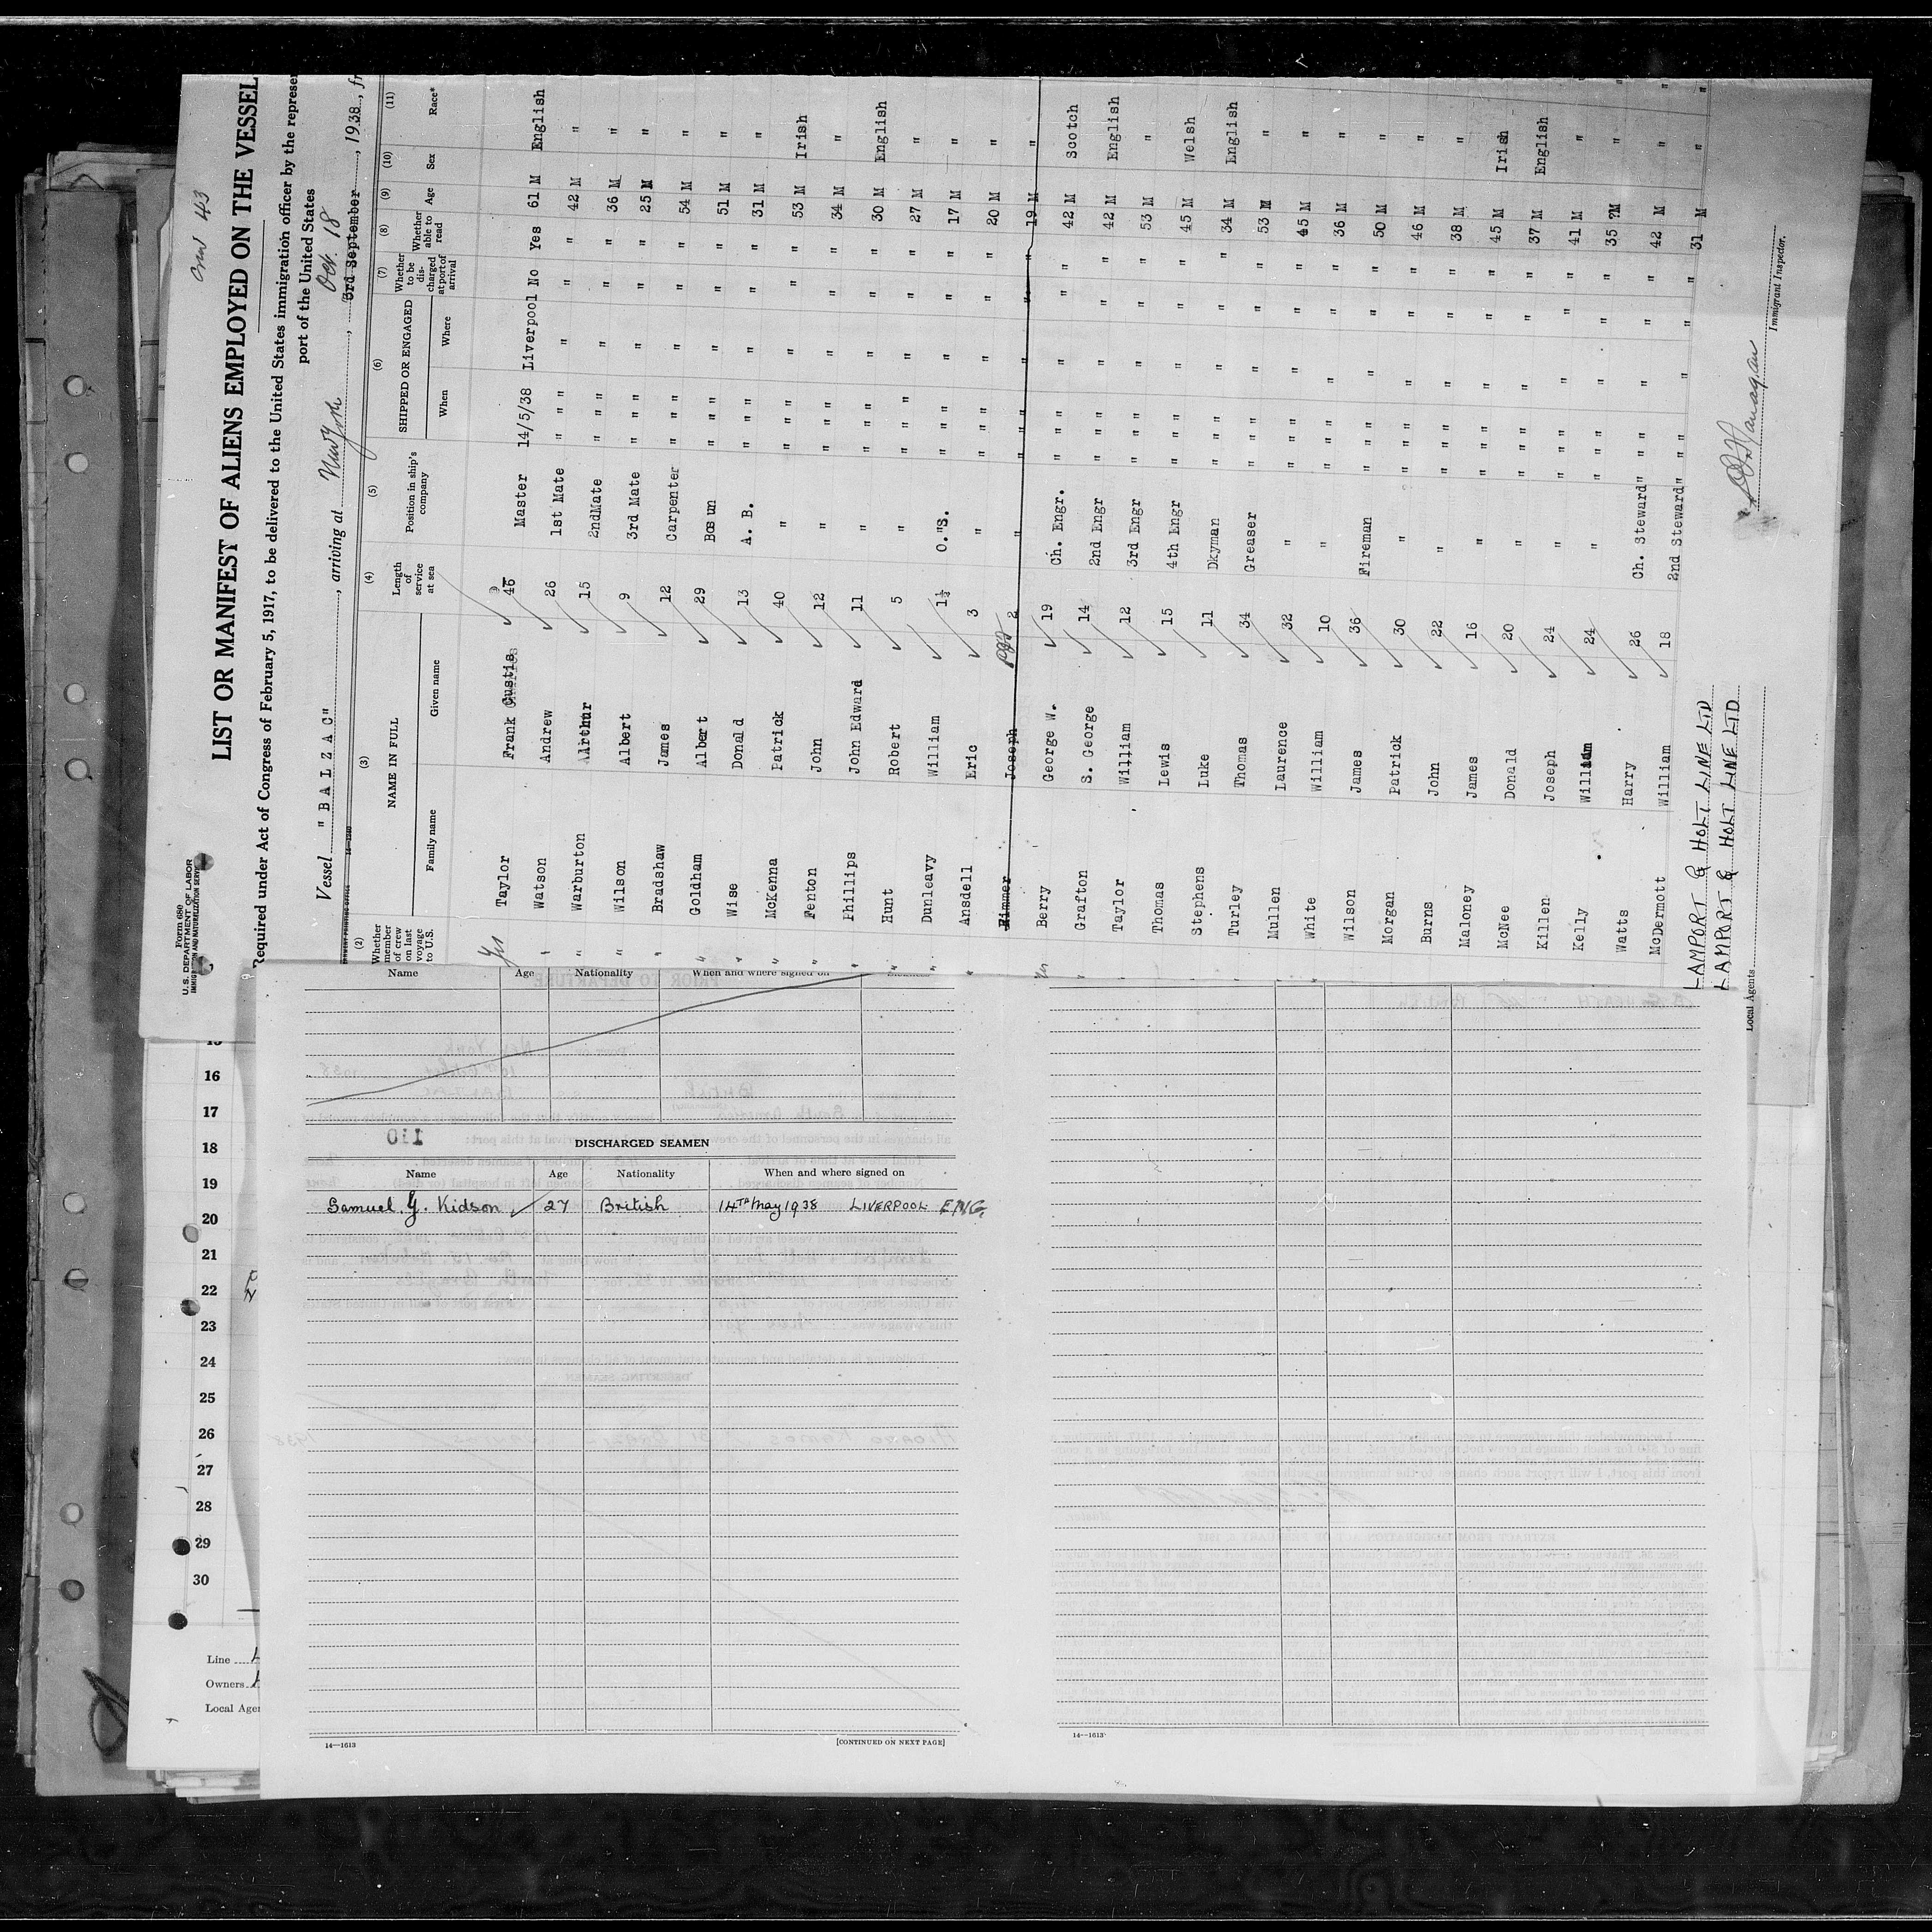 Crew 43
LIST OR MANIFEST OF ALIENS EMPLOYED ON THE VESSEL
Required under Act of Congress of February 5, 1917, to be delivered to the United States immigration officer by the represe
port of the United States
Form 680
U.S. DEPARTMENT OF LABOR
IMMIGRATION AND NATURALIZATION SERVICE
Vessel "BALZAC", arriving at New York, Oct. 18 3rd September, 1938, fr
(2) (3) (4) (5) (6) (7) (8) (9) (10) (11)
Whether member of crew on last voyage to U.S. NAME IN FULL Family name Given name Length of service at sea Position in ship's company SHIPPED OR ENGAGED When Where Whether to be discharged at port of arrival Whether able to read Age Sex Race*
Yes Taylor Frank Custis 46 Master 14/5/38 Liverpool No Yes 61 M English
" Watson Andrew 26 1st Mate " " " " " " 42 M "
" Warburton Arthur 15 2ndMate " " " " " " 36 M "
" Wilson Albert 9 3rd Mate " " " " " " 25 M "
" Bradshaw James 12 Carpenter " " " " " " 54 M "
" Goldham Albert 29 Bosun " " " " " " 51 M "
" Wise Donald 13 A. B. " " " " " " 31 M "
" McKenna Patrick 40 " " " " " " " 53 M Irish
" Fenton John 12 " " " " " " " 34 M "
" Phillips John Edward 11 " " " " " " " 30 M English
" Hunt Robert 5 " " " " " " " 27 M "
" Dunleavy William 1½ O.S. " " " " " " 17 M "
" Ansdell Eric 3 " " " " " " " 20 M "
Rimmer Joseph 2 " " " " " " " 19 M "
Yes Berry George W. 19 Ch. Engr. " " " " " " 42 M Scotch
" Grafton S. George 14 2nd Engr " " " " " " 42 M English
Taylor William 12 3rd Engr " " " " " " 53 M "
Thomas Lewis 15 4th Engr " " " " " " 45 M Welsh
Stephens Luke 11 Dkyman " " " " " " 34 M English
Turley Thomas 34 Greaser " " " " " " 53 M "
Mullen Laurence 32 " " " " " " " 45 M "
White William 10 " " " " " " " 36 M "
Wilson James 36 Fireman " " " " " " 50 M "
Morgan Patrick 30 " " " " " " " 46 M "
Burns John 22 " " " " " " " 38 M "
Maloney James 16 " " " " " " " 45 M Irish
McNee Donald 20 " " " " " " " 37 M English
Killen Joseph 24 " " " " " " " 41 M "
Kelly William 24 " " " " " " " 35 ?M "
Watts Harry 26 Ch. Steward " " " " " " 42 M "
McDermott William 18 2nd Steward " " " " " " 31 M "
LAMPORT & HOLT LINE LTD
LAMPORT & HOLT LINE LTD
Local Agents
Immigrant Inspector.
Name Age Nationality When and where signed on
DISCHARGED SEAMEN
Name Age Nationality When and where signed on
Samuel G. Kidson 27 British 14TH May 1938 LIVERPOOL ENG.
14—1613 [CONTINUED ON NEXT PAGE]
14—1613
15
16
17
18
19
20
21
22
23
24
25
26
27
28
29
30
Line
Owners
Local Agen